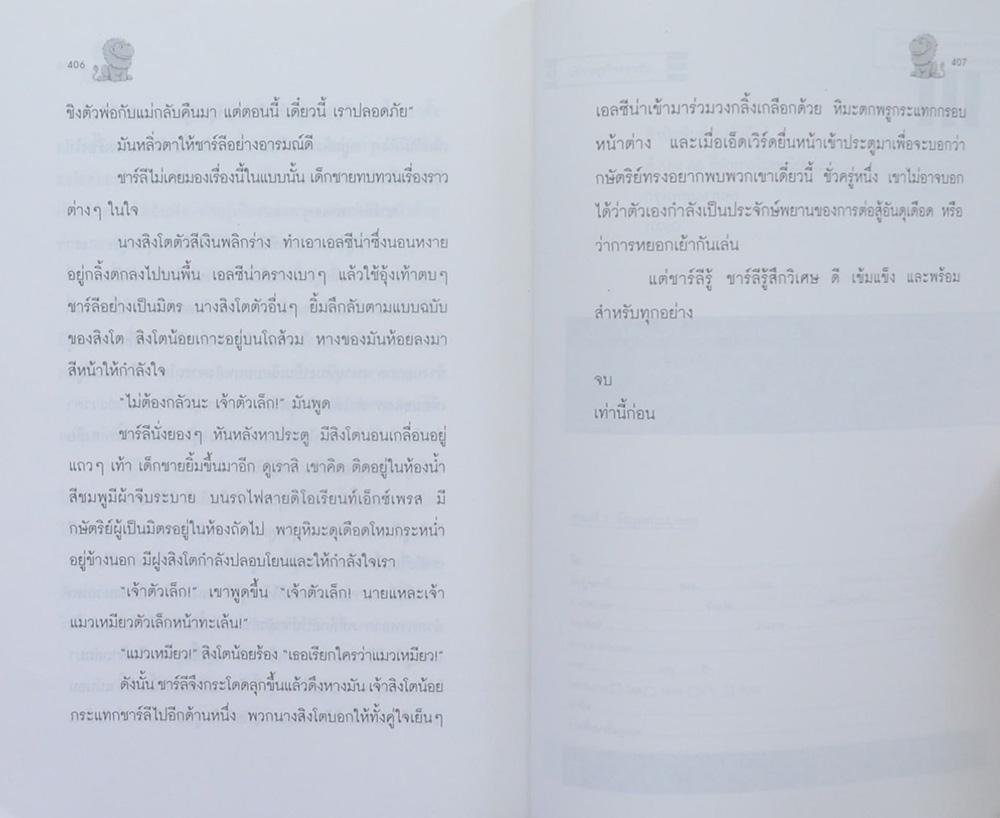 406
ชิงตัวพ่อกับแม่กลับคืนมา แต่ตอนนี้ เดี๋ยวนี้ เราปลอดภัย"
มันหลิ่วตาให้ชาร์ลีอย่างอารมณ์ดี
ชาร์ลีไม่เคยมองเรื่องนี้ในแบบนั้น เด็กชายทบทวนเรื่องราว
ต่างๆ ในใจ
นางสิงโตตัวสีเงินพลิกร่าง ทำเอาเอลซีน่าซึ่งนอนหงาย
อยู่กลิ้งตกลงไปบนพื้น เอลซีน่าครางเบาๆ แล้วใช้อุ้งเท้าตบๆ
ชาร์ลีอย่างเป็นมิตร นางสิงโตตัวอื่นๆ ยิ้มลึกลับตามแบบฉบับ
ของสิงโต สิงโตน้อยเกาะอยู่บนโถส้วม หางของมันห้อยลงมา
สีหน้าให้กำลังใจ
"ไม่ต้องกลัวนะ เจ้าตัวเล็ก!" มันพูด
ชาร์ลีนั่งยองๆ หันหลังหาประตู มีสิงโตนอนเกลื่อนอยู่
แถวๆ เท้า เด็กชายยิ้มขึ้นมาอีก ดูเราสิ เขาคิด ติดอยู่ในห้องน้ำ
สีชมพูมีผ้าจีบระบาย บนรถไฟสายดิโอเรียนท์เอ็กซ์เพรส มี
กษัตริย์ผู้เป็นมิตรอยู่ในห้องถัดไป พายุหิมะดุเดือดโหมกระหน่ำ
อยู่ข้างนอก มีฝูงสิงโตกำลังปลอบโยนและให้กำลังใจเรา
"เจ้าตัวเล็ก!" เขาพูดขึ้น "เจ้าตัวเล็ก! นายแหละเจ้า
แมวเหมียวตัวเล็กหน้าทะเล้น!"
"แมวเหมียว!" สิงโตน้อยร้อง "เธอเรียกใครว่าแมวเหมียว!"
ดังนั้น ชาร์ลีจึงกระโดดลุกขึ้นแล้วดึงหางมัน เจ้าสิงโตน้อย
กระแทกชาร์ลีไปอีกด้านหนึ่ง พวกนางสิงโตบอกให้ทั้งคู่ใจเย็นๆ
407
เอลซีน่าเข้ามาร่วมวงกลิ้งเกลือกด้วย หิมะตกพรูกระแทกกรอบ
หน้าต่าง และเมื่อเอ็ดเวิร์ดยื่นหน้าเข้าประตูมาเพื่อจะบอกว่า
กษัตริย์ทรงอยากพบพวกเขาเดี๋ยวนี้ ชั่วครู่หนึ่ง เขาไม่อาจบอก
ได้ว่าตัวเองกำลังเป็นประจักษ์พยานของการต่อสู้อันดุเดือด หรือ
ว่าการหยอกเย้ากันเล่น
แต่ชาร์ลีรู้ ชาร์ลีรู้สึกวิเศษ ดี เข้มแข็ง และพร้อม
สำหรับทุกอย่าง
จบ
เท่านี้ก่อน